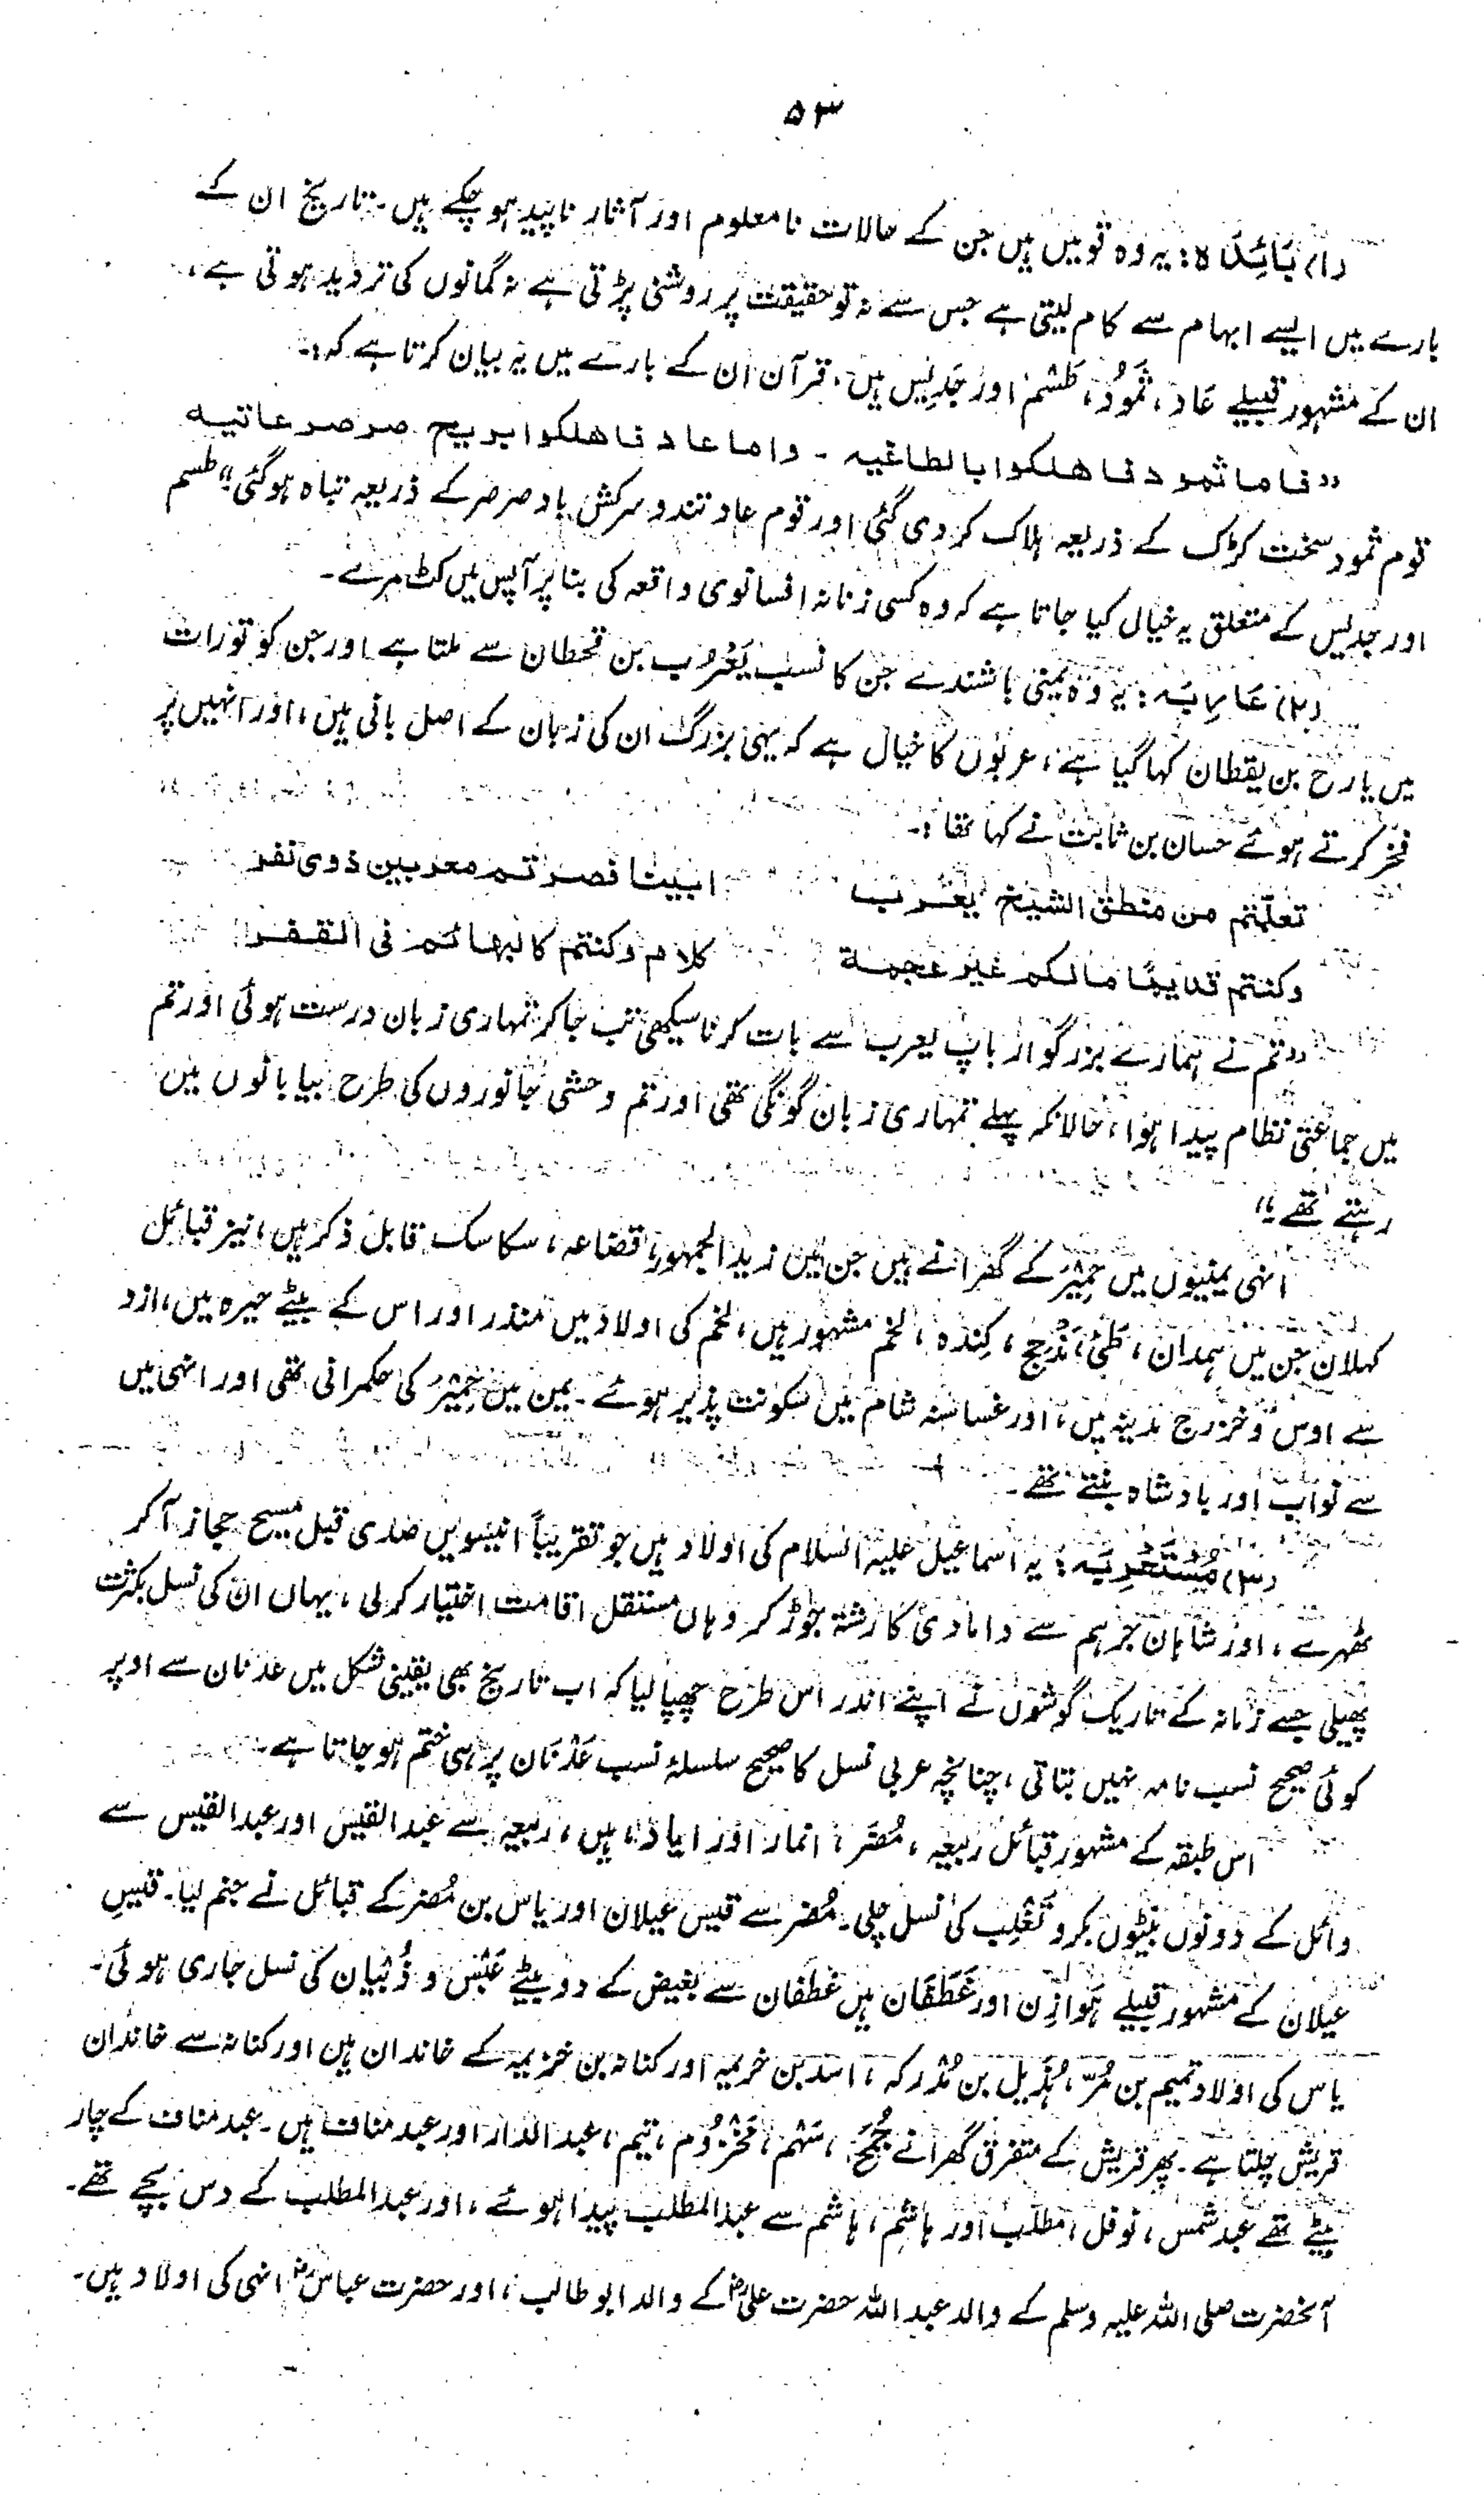 ۵۳
(۱) بَائِدَہ: یہ وہ قومیں ہیں جن کے حالات نامعلوم اور آثار ناپید ہو چکے ہیں۔ تاریخ ان کے
بارے میں ایسے ابہام سے کام لیتی ہے جس سے نہ تو حقیقت پر روشنی پڑتی ہے نہ گمانوں کی تردید ہوتی ہے،
ان کے مشہور قبیلے عَاد، ثَمُود، طَسْم اور جَدِیس ہیں، قرآن ان کے بارے میں یہ بیان کرتا ہے کہ:۔
"فاما ثمود فاھلکوا بالطاغیہ ۔ واما عاد فاھلکوا بریح صرصر عاتیہ
قوم ثمود سخت کڑک کے ذریعہ ہلاک کر دی گئی اور قوم عاد تند و سرکش باد صرصر کے ذریعہ تباہ ہو گئی" طسم
اور جدیس کے متعلق یہ خیال کیا جاتا ہے کہ وہ کسی زنانہ افسانوی واقعہ کی بنا پر آپس میں کٹ مرے۔
(۲) عَارِبَہ: یہ وہ یمنی باشندے جن کا نسب یَعْرُب بن قحطان سے ملتا ہے اور جن کو تورات
میں یارح بن یقطان کہا گیا ہے، عربوں کا خیال ہے کہ یہی بزرگ ان کی زبان کے اصل بانی ہیں، اور انہیں پر
فخر کرتے ہوئے حسان بن ثابت نے کہا تھا:۔
تعلّمتم من منطق الشیخ یعرب ابینا فصرتم معربین ذوی نفر
وکنتم قدیمًا مالکم غیر عجمة کلام وکنتم کالبھائم فی القفر
"تم نے ہمارے بزرگوار باپ یعرب سے بات کرنا سیکھی تب جا کر تمہاری زبان درست ہوئی اور تم
میں جماعتی نظام پیدا ہوا، حالانکہ پہلے تمہاری زبان گونگی تھی اور تم وحشی جانوروں کی طرح بیابانوں میں
رہتے تھے۔"
انہی یمنیوں میں حِمْیَر کے گھرانے ہیں جن میں زید الجمہور، قضاعہ، سکاسک قابل ذکر ہیں، نیز قبائل
کہلان جن میں ہمدان، طَیّ، مَذْحِج، کِندہ، لخم مشہور ہیں، لخم کی اولاد میں منذر اور اس کے بیٹے حیرہ میں، ازد
سے اوس و خزرج مدینہ میں، اور غساسنہ شام میں سکونت پذیر ہوئے۔ یمن میں حِمْیَر کی حکمرانی تھی اور انہی میں
سے نواب اور بادشاہ بنتے تھے۔
(۳) مُسْتَعْرِبَہ: یہ اسماعیل علیہ السلام کی اولاد ہیں جو تقریباً انیسویں صدی قبل مسیح حجاز آ کر
ٹھہرے، اور شاہان جرہم سے دامادی کا رشتہ جوڑ کر وہاں مستقل اقامت اختیار کر لی، یہاں ان کی نسل بکثرت
پھیلی جسے زمانہ کے تاریک گوشوں نے اپنے اندر اس طرح چھپا لیا کہ اب تاریخ بھی یقینی شکل میں عدنان سے اوپر
کوئی صحیح نسب نامہ نہیں بتاتی، چنانچہ عربی نسل کا صحیح سلسلۂ نسب عَدْنَان پر ہی ختم ہو جاتا ہے۔
اس طبقہ کے مشہور قبائل ربیعہ، مُضَر، انمار اور ایاد، ہیں، ربیعہ سے عبدالقیس اور عبدالقیس سے
وائل کے دونوں بیٹوں بکر و تَغْلِب کی نسل چلی۔ مُضر سے قیس عیلان اور یاس بن مُضر کے قبائل نے جنم لیا۔ قیسِ
عیلان کے مشہور قبیلے ہَوازِن اور غَطَفَان ہیں غطفان سے بغیض کے دو بیٹے عَبْس و ذُبْیان کی نسل جاری ہوئی۔
یاس کی اولاد تمیم بن مُرّ، ہُذَیل بن مُدْرکہ، اسد بن خزیمہ اور کنانہ بن خزیمہ کے خاندان ہیں اور کنانہ سے خاندان
قریش چلتا ہے۔ پھر قریش کے متفرق گھرانے جُمَح، سَہْم، مَخْزُوم، تیم، عبدالدار اور عبد مناف ہیں۔ عبد مناف کے چار
بیٹے تھے عبد شمس، نوفل، مطلب اور ہاشم، ہاشم سے عبدالمطلب پیدا ہوئے، اور عبدالمطلب کے دس بچے تھے۔
آنحضرت صلی اللہ علیہ وسلم کے والد عبداللہ حضرت علیؓ کے والد ابو طالب، اور حضرت عباسؓ انہی کی اولاد ہیں۔